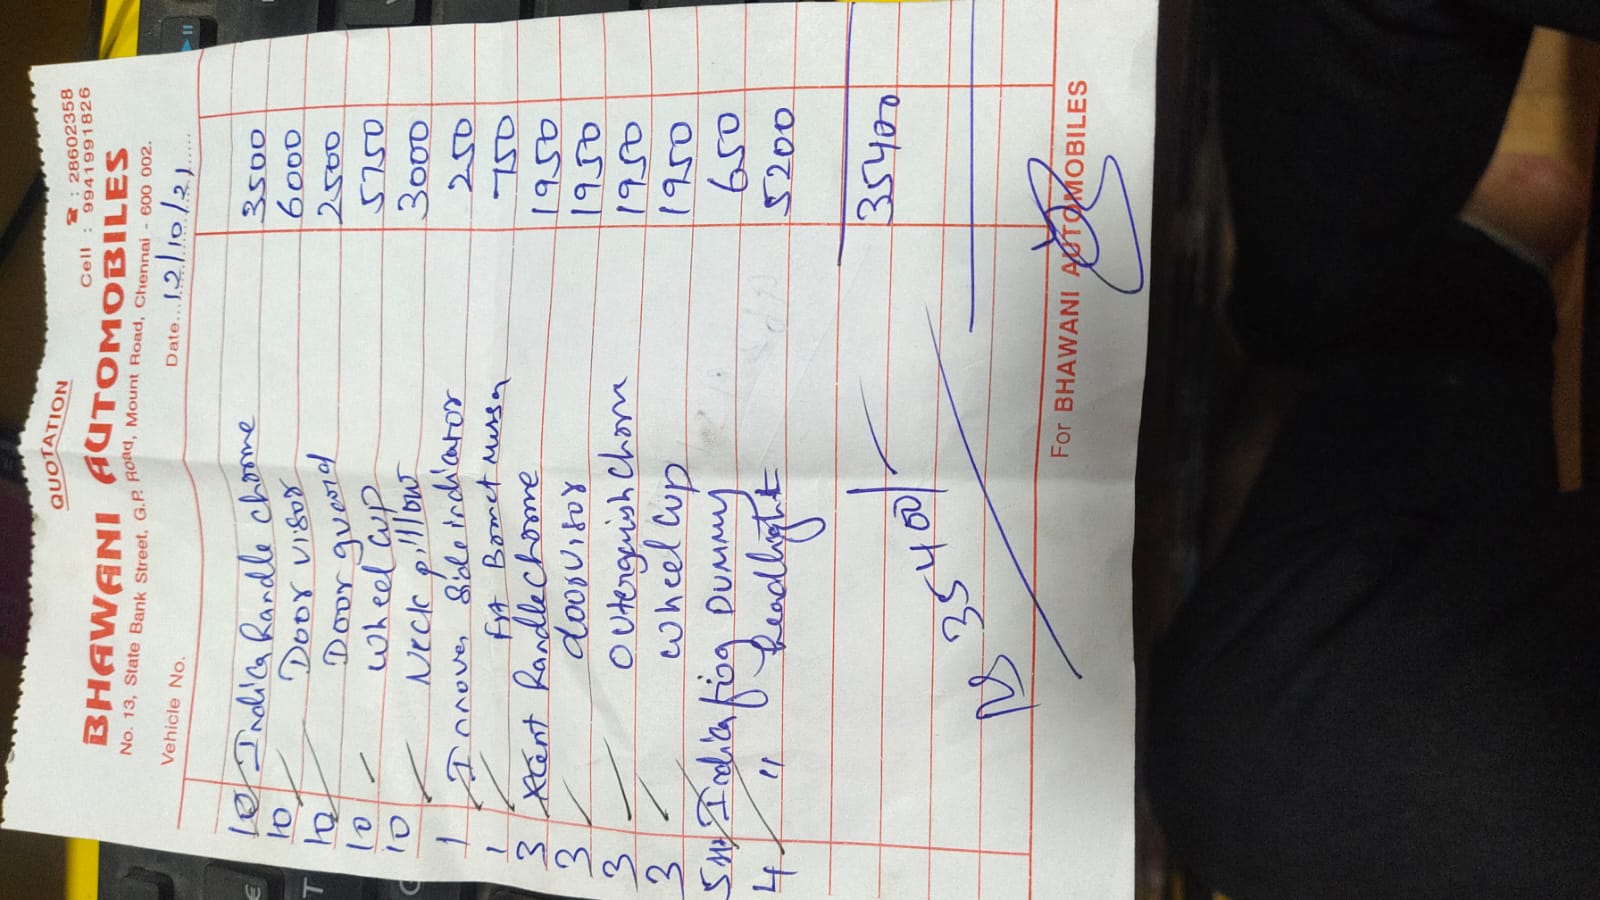 QUOTATION
☎ : 28602358
Cell : 9941991826
BHAWANI AUTOMOBILES
No. 13, State Bank Street, G.P. Road, Mount Road, Chennai - 600 002.
Vehicle No. Date...12/10/21
10 Indica Handle chrome 3500
10 Door visor 6000
10 Door guard 2500
10 wheel cup 5750
10 Neck pillow 3000
1 Innova Side indicator 250
1 Bonnet 750
3 Xcent Handle chrome 1950
3 doorvisor 1950
3 outergarnish chrom 1950
3 wheel cup 1950
5 Indica fog Dummy 650
4 " headlight 5200
35400
Rs 35400/-
For BHAWANI AUTOMOBILES